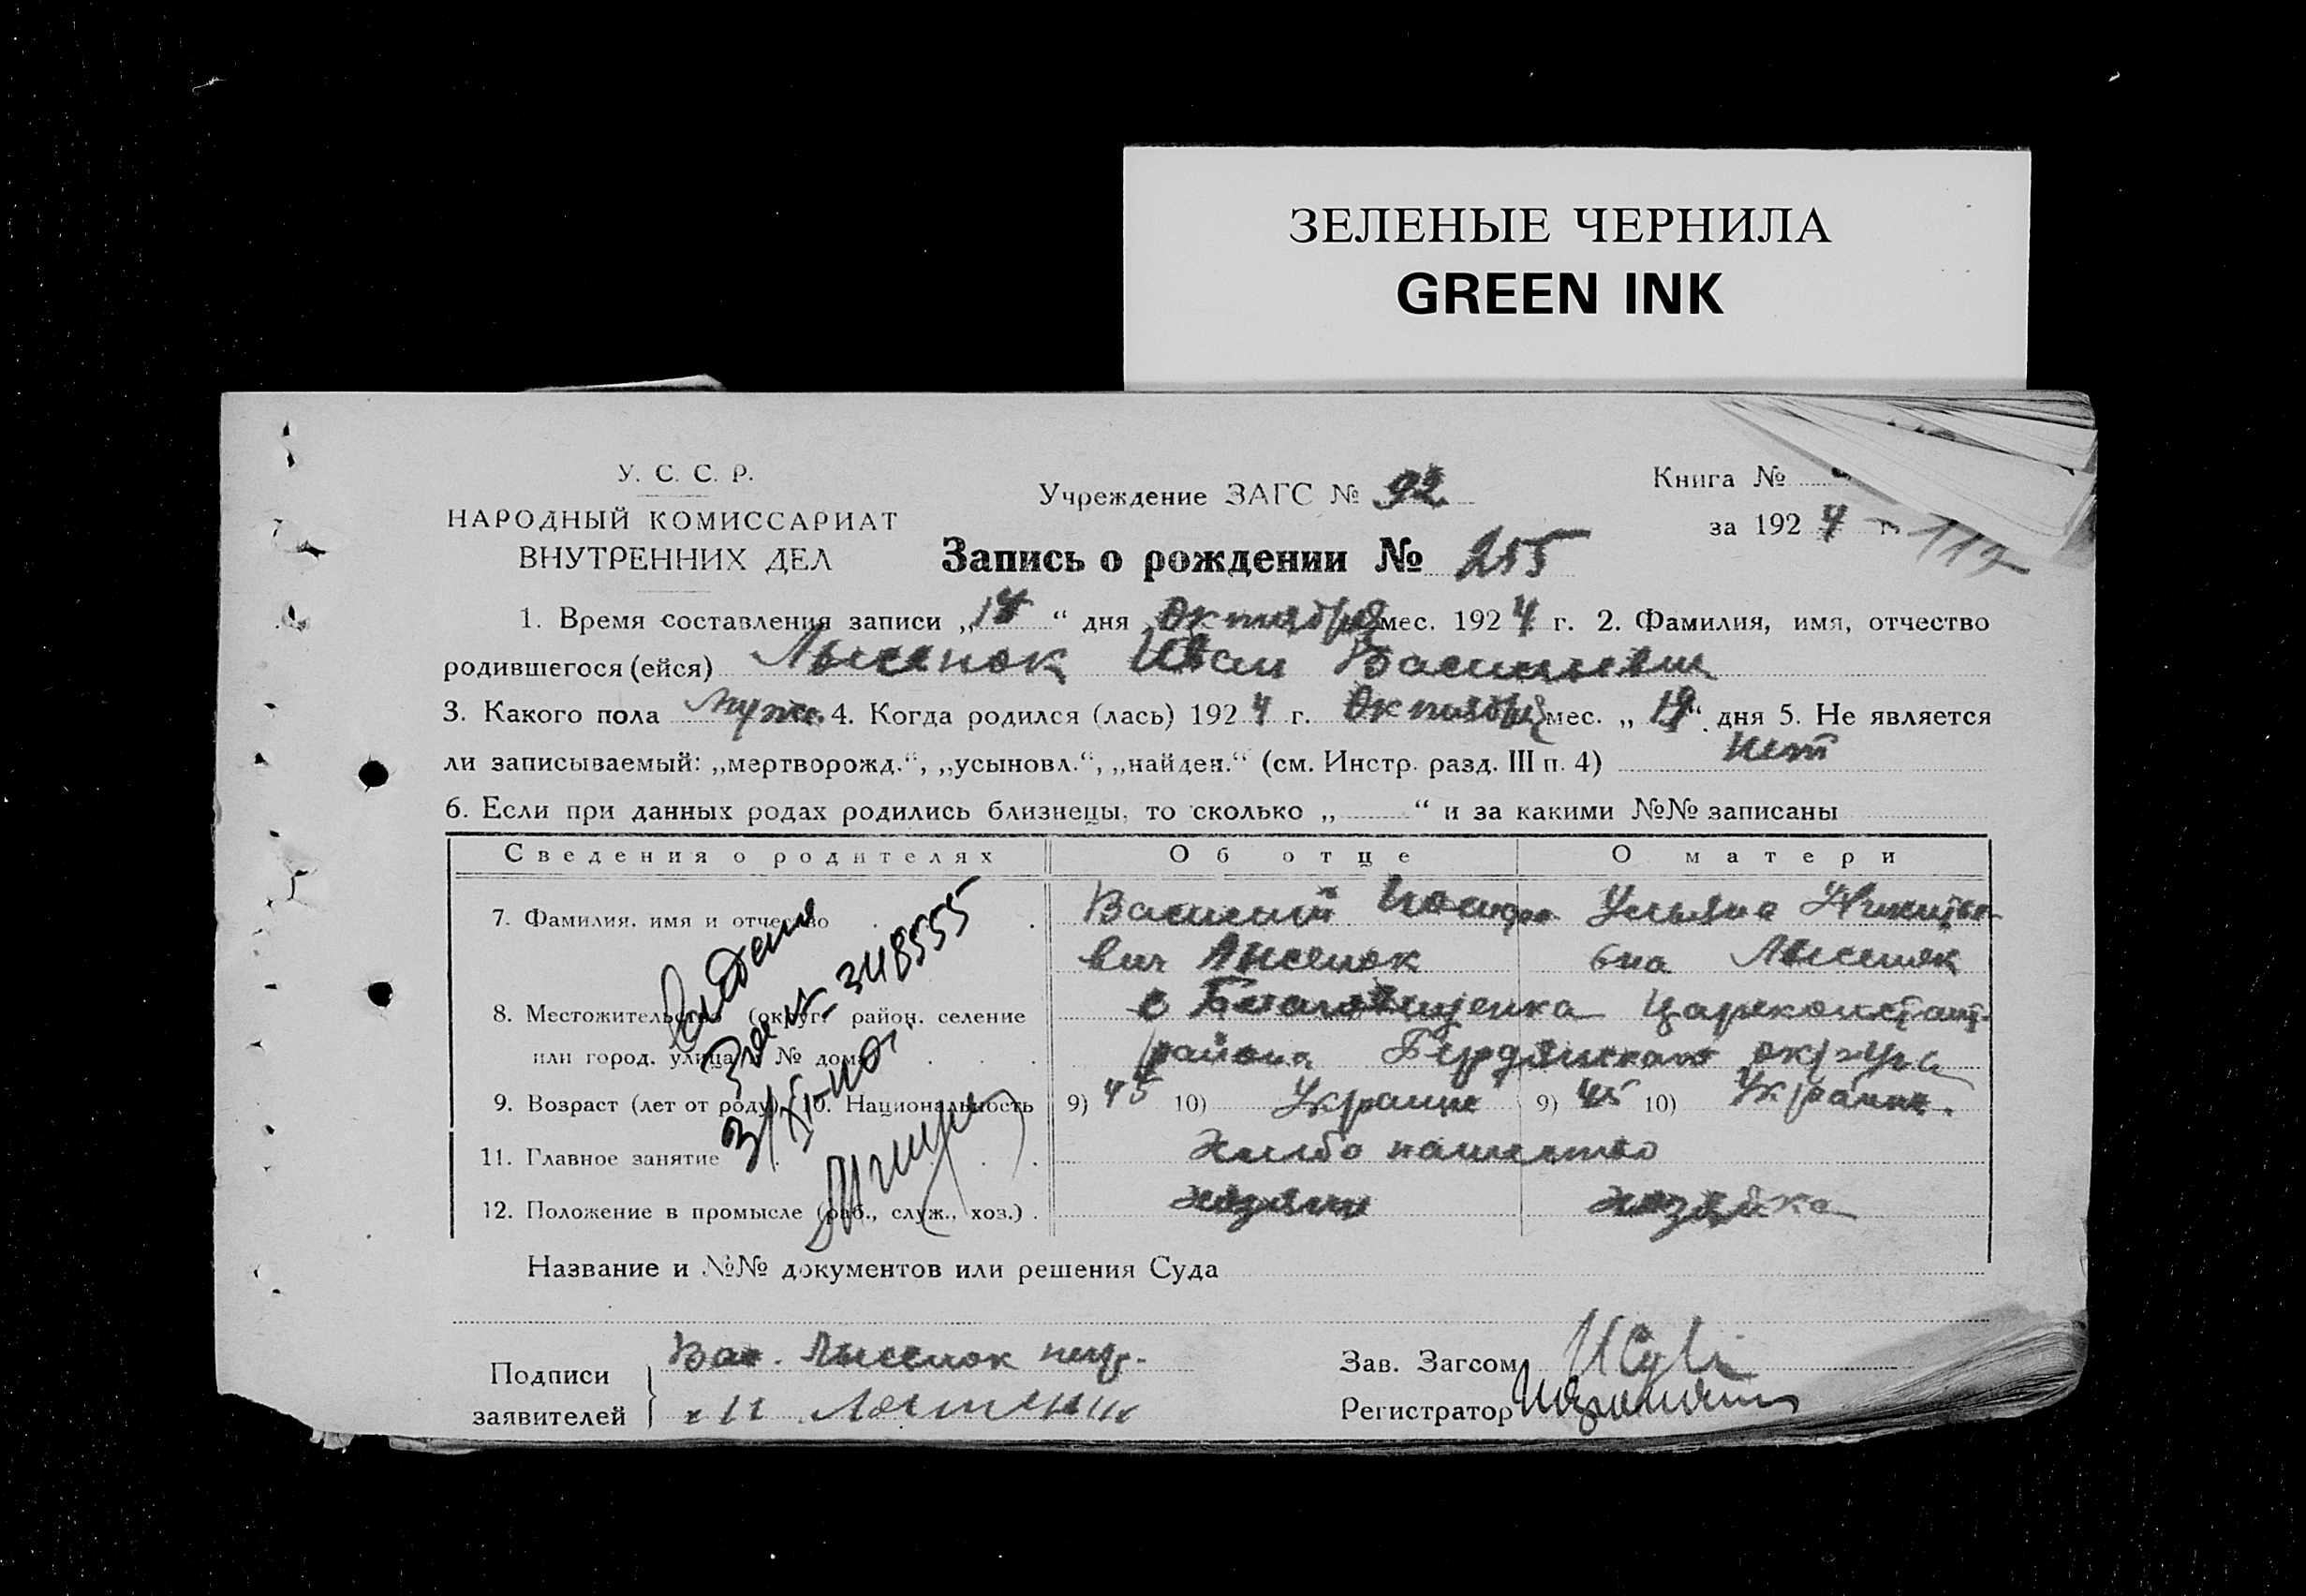 ЗЕЛЕНЫЕ ЧЕРНИЛА
GREEN INK
У. С. С. Р.
НАРОДНЫЙ КОМИССАРИАТ
ВНУТРЕННИХ ДЕЛ
Учреждение ЗАГС № 92
Книга №
за 1924 г.
112
Запись о рождении № 255
1. Время составления записи „14“ дня Октября мес. 1924 г. 2. Фамилия, имя, отчество
родившегося (ейся) Лысенок Иван Васильевич
3. Какого пола муж. 4. Когда родился (лась) 1924 г. Октября мес. „ “ дня 5. Не является
ли записываемый: „мертворожд.“, „усыновл.“, „найден.“ (см. Инстр. разд. III п. 4) Нет
6. Если при данных родах родились близнецы, то сколько „ “ и за какими №№ записаны
Сведения о родителях Об отце О матери
7. Фамилия, имя и отчество Василий Ульяна Никитов
вич Лысенок бна Лысенок
8. Местожительство (округ, район, селение с Благовещенка Цареконстант.
или город, улица и № дома района Бердянского округа
9. Возраст (лет от роду) 10. Национальность 9) 45 10) Украине 9) 45 10) Украине.
11. Главное занятие Хлибо пашество
12. Положение в промысле (раб., служ., хоз.) хозяин хозяйка
348555
Название и №№ документов или решения Суда
Подписи
заявителей
Вас. Лысенок негр.
Зав. Загсом
Регистратор